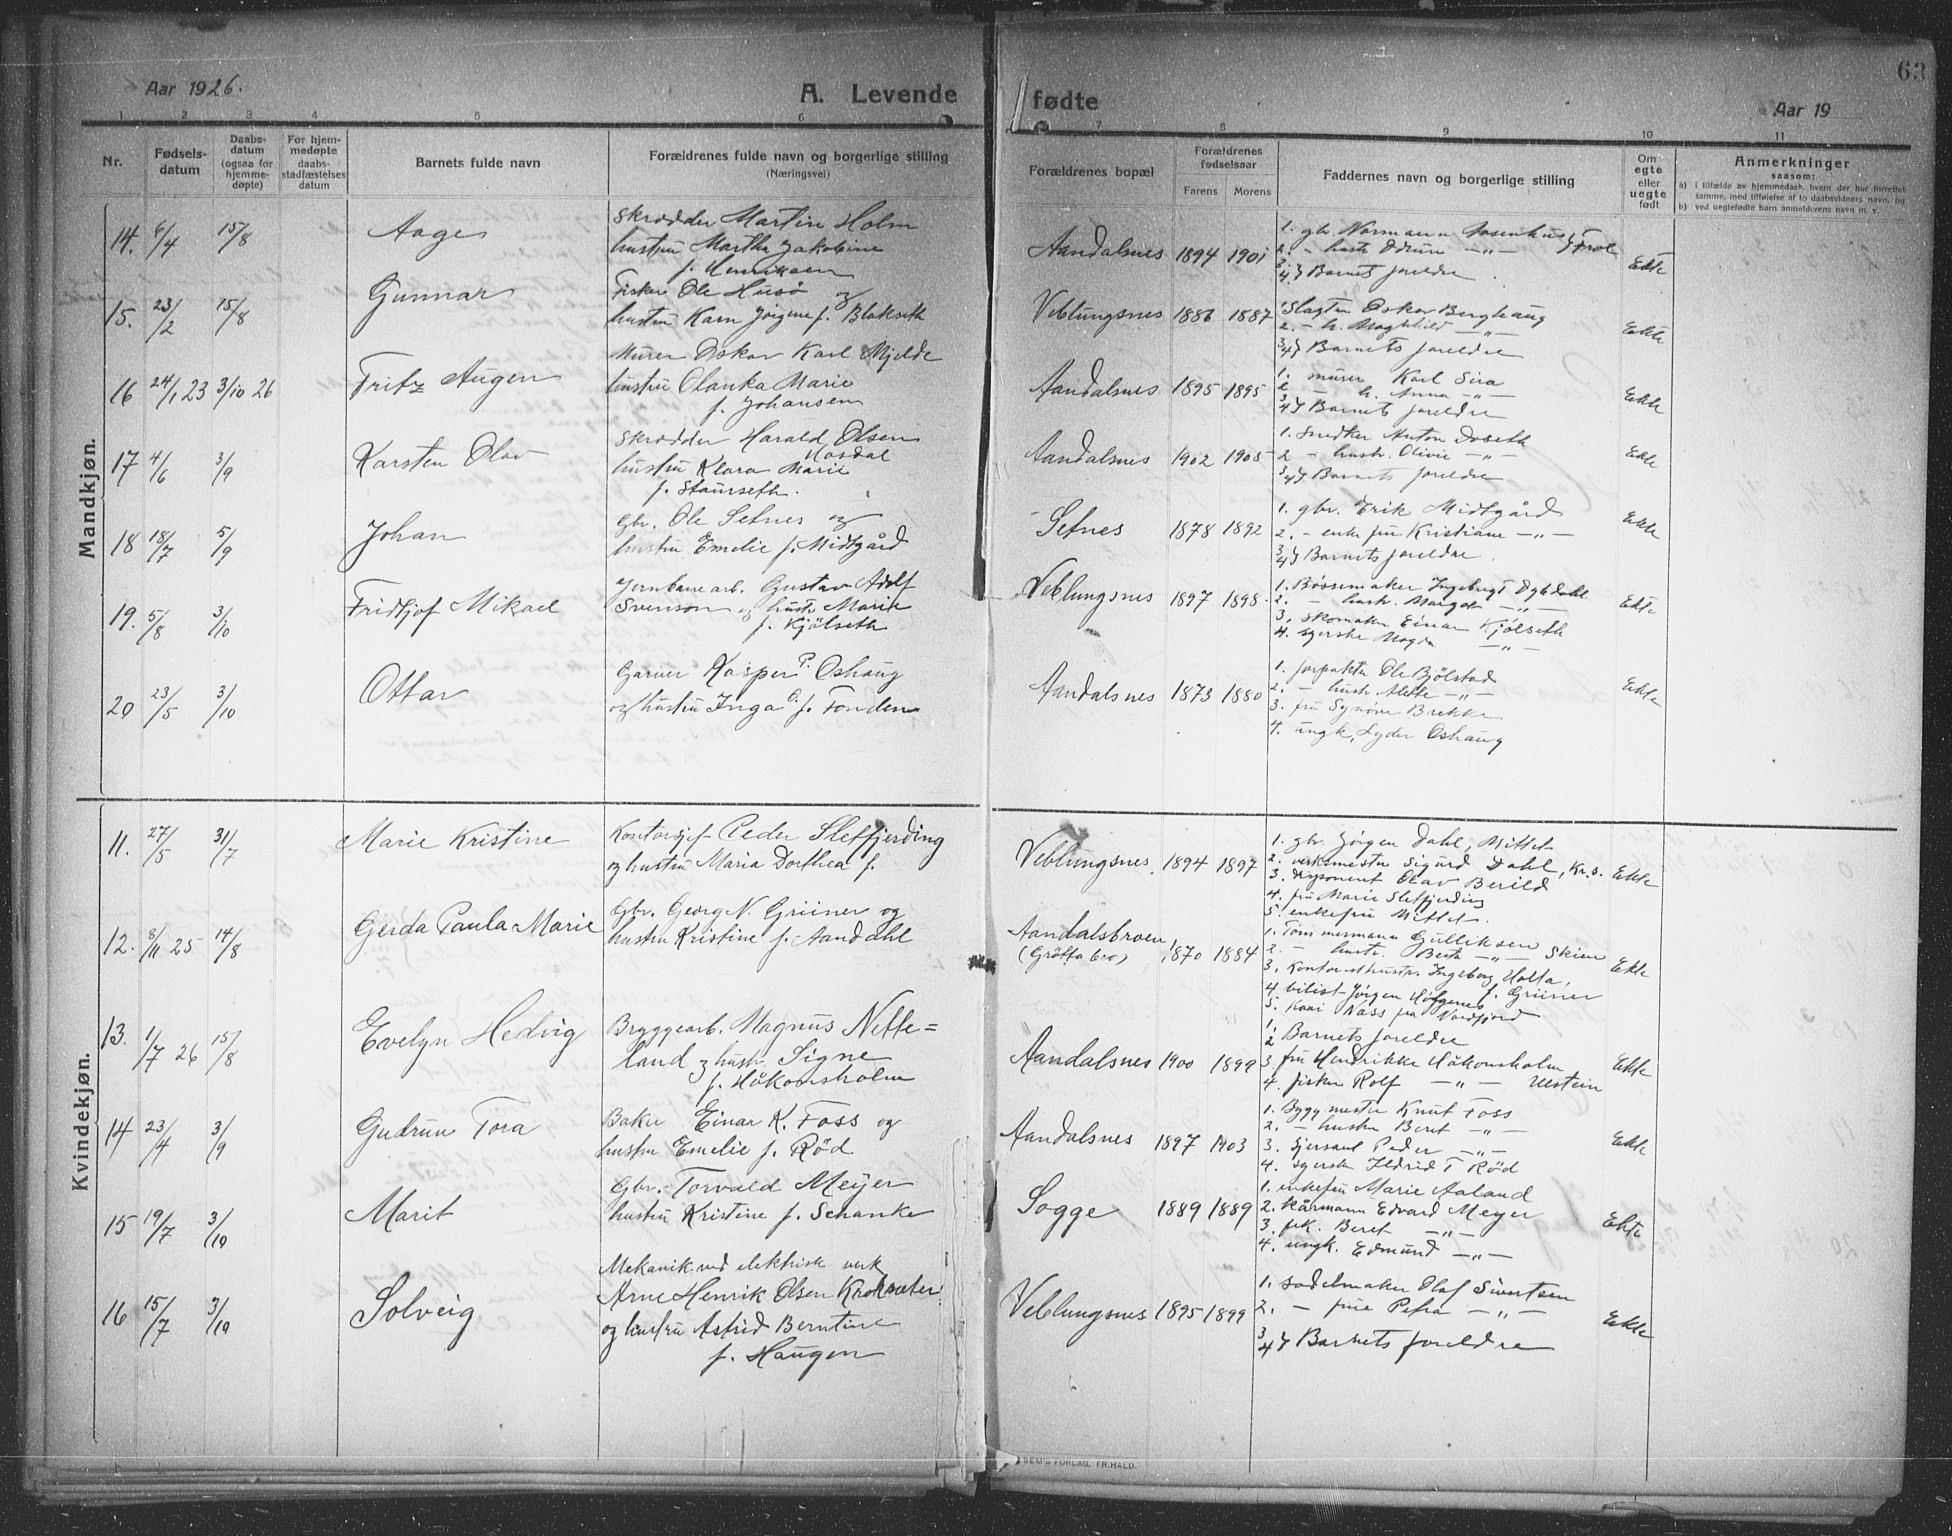 Aar 1926.
A. Levende
fødte
Aar 19
63
1 2 3 4 5 6 7 8 9 10 11
Nr.
Fødsels-
datum
Daabs-
datum
(ogsaa for
hjemme-
døpte)
For hjem-
medøpte
daabs-
stadfæstelses
datum
Barnets fulde navn
Forældrenes fulde navn og borgerlige stilling
(Næringsvei)
Forældrenes bopæl
Forældrenes
fødselsaar
Farens Morens
Faddernes navn og borgerlige stilling
Om
egte
eller
uegte
født
Anmerkninger
saasom:
a) i tilfælde av hjemmedaab, hvem der har forrettet
samme, med tilføielse af to daabsvidners navn, og
b) ved uegtefødte barn anmelderens navn m. v.
Mandkjøn.
14. 6/4 15/8 Aage
Skrædder Martin Holm
hustru Marthe Jakobine
f. Henriksen
Aandalsnes 1894 1901
1. gbr. Normann
2. - hustr. Odrun -"-
3/4} Barnets foreldre
Ekte
15. 23/2 15/8 Gunnar
Fisker Ole Husø og
hustru Karn Jørgine f. Blakseth
Veblungsnes 1886 1887
1 Slagter Oskar Berghaug
2. - h. Maghild -"-
3/4} Barnets foreldre
Ekte
16 24/1 23 3/10 26 Fritz Augen
Murer Oskar Karl Mjelde
hustru Olanka Marie
f. Johansen
Aandalsnes 1895 1895
1. murer Karl Sira
2 - h. Anna -"-
3/4} Barnets foreldre
Ekte
17 4/6 3/9 Karsten Olav
Skrædder Harald Olsen
Mosdal
hustru Klara Marie
f. Staurseth.
Aandalsnes 1902 1905
1. Snedker Anton Doseth
2 - hustr. Olivie -"-
3/4} Barnets foreldre
Ekte
18 18/7 5/9 Johan
Gbr. Ole Setnes og
hustru Emelie f. Midtgård
Setnes 1878 1892
1. gbr. Erik Midtgård
2. - enke fru Kristiane -"-
3/4} Barnets foreldre
Ekte
19. 5/8 3/10 Fridtjof Mikael
Jernbanearb. Gustav Adolf
Svenson og hustr. Marie
f. Kjölseth
Veblungsnes 1897 1898
1. Bössemaker Ingebrigt Dybdahl
2. - hustr. Margot -"-
3. skomaker Einar Kjölseth
4. syerske Magna -"-
Ekte
20 23/5 3/10 Ottar
Garver Kasper P. Oshaug
og hustru Inga O. f. Fonden
Aandalsnes 1873 1880
1. forpakter Ole Bjölstad
2. - hustr. Mette -"-
3. fru Synöve Brekke
4. ungk. Lyder Oshaug
Ekte
Kvindekjøn.
11. 27/5 31/7 Marie Kristine
Kontorsjef Peder Sletfjerding
og hustru Maria Dorthea f.
Veblungsnes 1894 1897
1. gbr. Jörgen Dahl, Mittet
2. verksmester Sigurd Dahl, Kr.s.
3. Disponent Olav Berild
4. fru Marie Sletfjerding
5. enkefru Mittet.
Ekte
12. 8/11 25 14/8 Gerda Paula Marie
Gbr. Georg N. Grüner og
hustru Kristine f. Aandahl
Aandalsbroen
(Grötta bro) 1870 1884
1. Tömmermann Gulliksen
2. - hustr. Berth -"- Skien
3. Kontoristhustr. Ingeborg Holta,
f. Grüner
4. bilist Jörgen Höfgenes
5. Kaari Nass fra Nordfjord
Ekte
13. 1/7 26 15/8 Evelyn Hedvig
Bryggearb. Magnus Nette=
land og hustr. Signe
f. Håkonsholm
Aandalsnes 1900 1899
1/2 Barnets foreldre
3 fru Hendrikke Håkonsholm
4. fisker Rolf -"- Ulstein
Ekte
14 23/4 3/9 Gudrun Tora
Baker Einar K. Foss og
hustru Emelie f. Röd
Aandalsnes 1897 1903
1. Byggmester Knut Foss
2. - hustru Beret -"-
3. Peder -"-
4. syerske Ildrid T Röd
Ekte
15 19/7 3/10 Marit
Gbr. Torvald Meyer
hustru Kristine f. Schanke
Sogge 1889 1889
1. enkefru Marie Aaland
2. kårmann Edvard Meyer
3. frk. Beret -"-
4. ungk. Edmund -"-
Ekte
16 15/7 3/10 Solveig
Mekanik. ved elektrisk verk
Arne Henrik Olsen Kroknæter
og hustru Astrid Berntine
f. Haugen
Veblungsnes 1895 1899
1. sadelmaker Olaf Sivertsen
2. - frue Petra -"-
3/4} Barnets foreldre
Ekte
SEM'S FORLAG, FR.HALD.